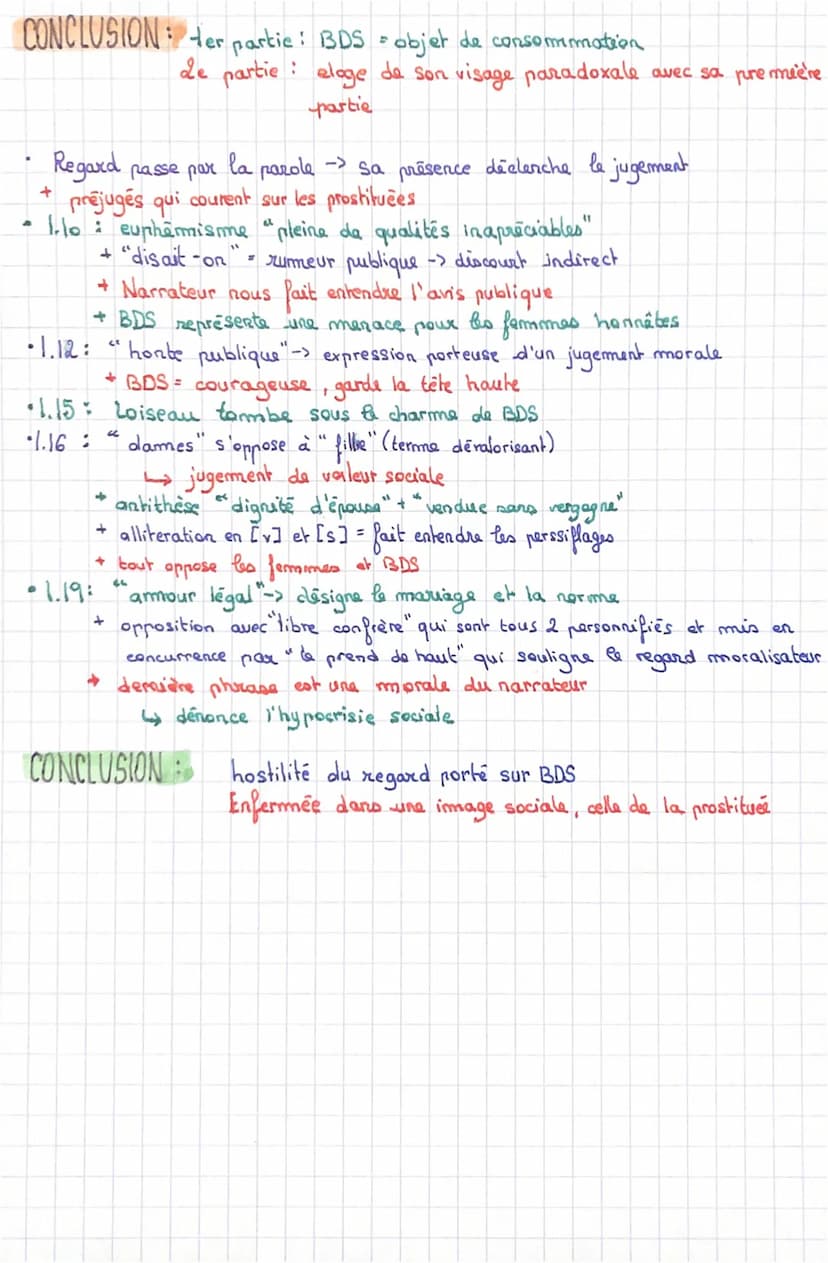 CONCLUSION : 1er partie : BDS = objet de consommation
2e partie : eloge de son visage paradoxale avec sa première
partie
• Regard passe par la parole -> sa présence déclenche le jugement
+ préjugés qui courent sur les prostituées
• l.10 : euphémisme "pleine de qualités inapréciables"
+ "disait-on" = rumeur publique -> discourt indirect
+ Narrateur nous fait entendre l'avis publique
+ BDS représente une menace pour les femmes honnêtes
• l.12 : "honte publique" -> expression porteuse d'un jugement morale
+ BDS = courageuse, garde la tête haute
• l.15 : Loiseau tombe sous le charme de BDS
• l.16 : "dames" s'oppose à "fille" (terme dévalorisant)
↳ jugement de valeur sociale
+ antithèse "dignité d'épouse" + "vendue sans vergogne"
+ alliteration en [v] et [s] = fait entendre les perssiflages
+ tout oppose les femmes et BDS
• l.19 : "amour légal" -> désigne le mariage et la norme
+ opposition avec "libre confrère" qui sont tous 2 personnifiés et mis en
concurrence par "le prend de haut" qui souligne le regard moralisateur
+ dernière phrase est une morale du narrateur
↳ dénonce l'hypocrisie sociale
CONCLUSION : hostilité du regard porté sur BDS
Enfermée dans une image sociale, celle de la prostitueé